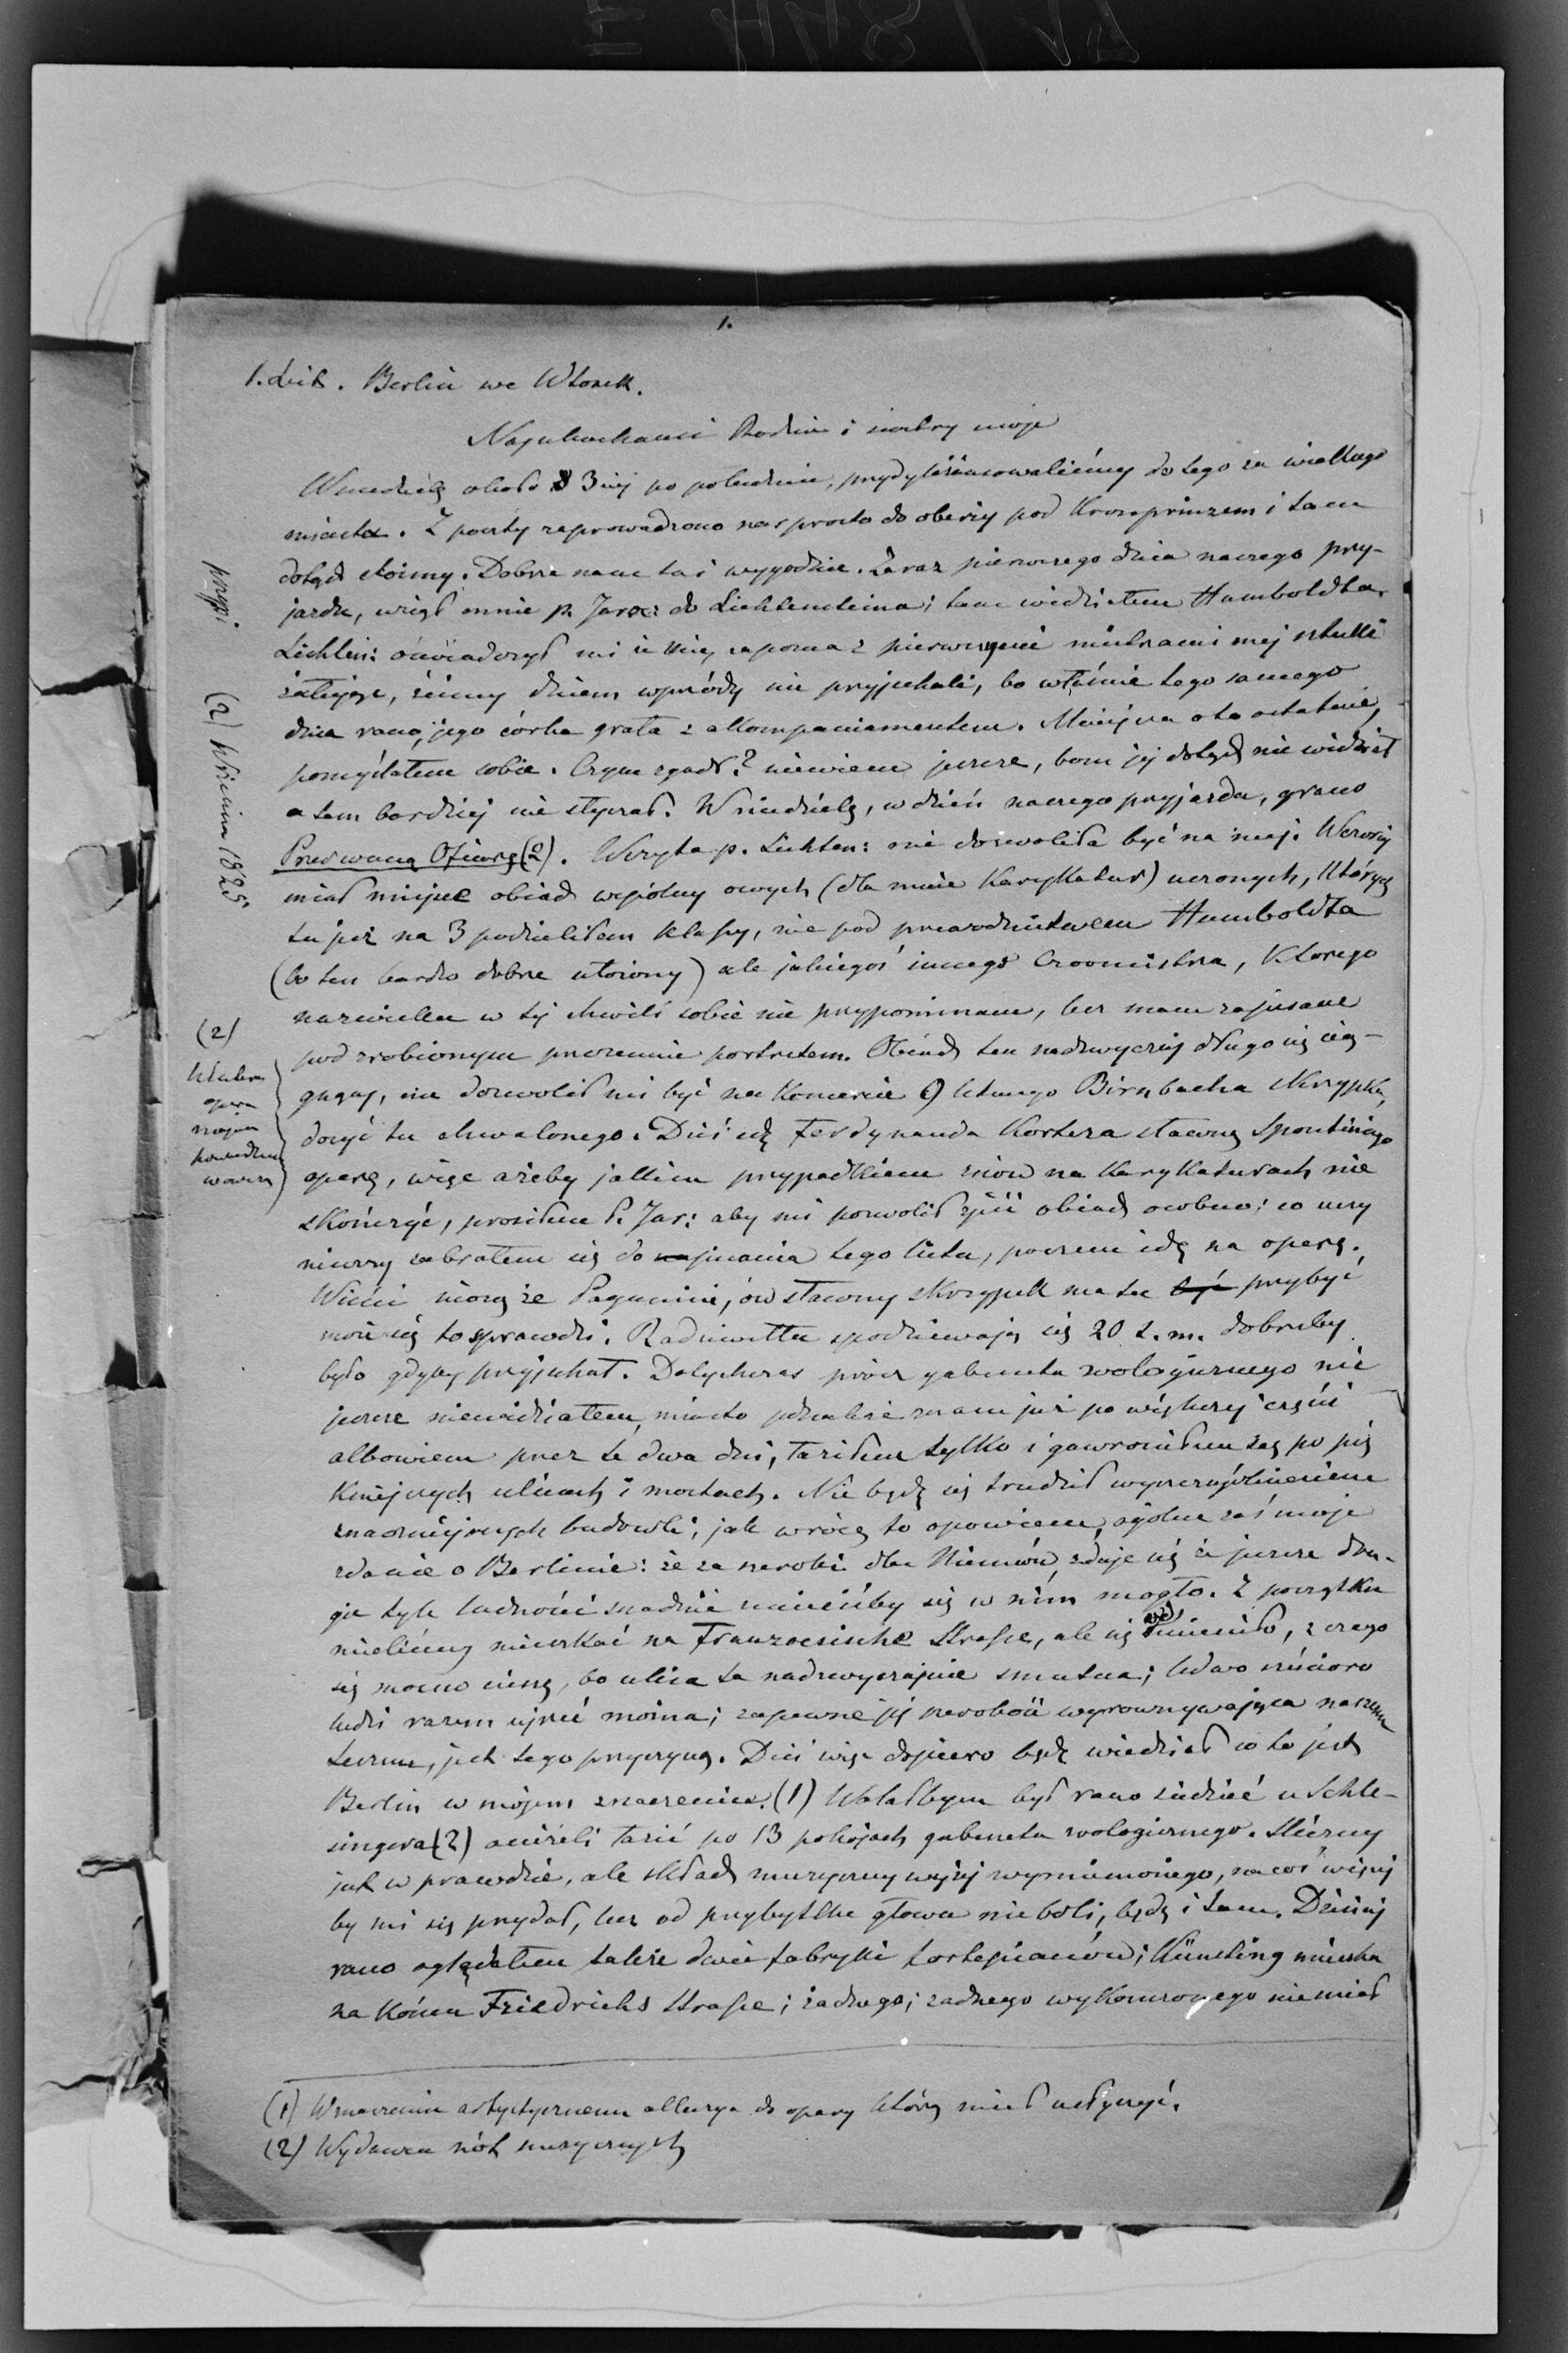 1.
1. List. Berlin we Wtorek.
Najukochańsi Rodzice i siostry moje
W niedzielę około 3ciej po południu, przydyliżansowaliśmy do tego za wielkiego
miasta. Z poczty zaprowadzono nas prosto do oberży pod Kronprinzem i tam
dotąd stoimy. Dobrze nam tu i wygodnie. Zaraz pierwszego dnia naszego przy-
jazdu, wziął mnie p. Jaroc: do Lichtensteina; tam widziałem Humboldta.
Lichten: oświadczył mi że mię zapozna z pierwszymi mistrzami mej sztuki
żałując, żeśmy dniem wprzódy nie przyjechali, bo właśnie tego samego
dnia rano, jego córka grała z akkompaniamentem. Mniejsza o to ostatnie,
pomyślałem sobie. Czym zgadł? niewiem jeszcze, bom jej dotąd nie widział
a tem bardziej nie słyszał. W niedzielę, w dzień naszego przyjazdu, grano
Przerwaną Ofiarę (2). Wizyta p. Lichten: nie dozwoliła być na niej. Wczoraj
miał miejsce obiad wspólny owych (dla mnie karykatur) uczonych, których
tu już na 3 podzieliłem klassy, nie pod przewodnictwem Humboldta
(bo ten bardzo dobrze ułożony) ale jakiegoś innego Croomistrza, którego
nazwiska w tej chwili sobie nie przypominam, lecz mam zapisane
pod zrobionym przezemnie portretem. Obiad ten nadzwyczaj długo się cią-
gnący, nie dozwolił mi być na koncercie 9 letniego Birnbacha skrzypka,
dosyć tu chwalonego. Dziś idę Ferdynanda Korteza sławną Spontiniego
operę, więc ażeby jakim przypadkiem znów na karykaturach nie
skończyć, prosiłem P. Jar: aby mi pozwolił zjeść obiad osobno; co uczy
niwszy zabrałem się do pisania tego listu, poczem idę na operę.
Wieści niosą że Paganini, ów sławny skrzypek ma tu być przybyć
może się to sprawdzi. Radziwiłła spodziewają się 20 t. m. dobrzeby
było gdyby przyjechał. Dotychczas prócz gabinetu zoologicznego nic
jeszcze niewidziałem, miasto jednakże znam już po większej części
albowiem przez te dwa dni, łaziłem tylko i gawroniłem się po pię
kniejszych ulicach i mostach. Nie będę się trudził wyszczególnieniem
znaczniejszych budowli; jak wrócę to opowiem, ogólne zaś moje
zdanie o Berlinie: że za szeroki dla Niemców, zdaje się że jeszcze dru-
gie tyle ludności snadnie mieściłby się w nim mogło. Z początku
mieliśmy mieszkać na Franzoesische Strasse, ale się zmieniło, z czego
się mocno cieszę, bo ulica ta nadzwyczajnie smutna; ledwo sześcioro
ludzi razem ujrzeć można; zapewne jej szerokość wyrównywająca naszemu
Lesznu, jest tego przyczyną. Dziś więc dopiero będę wiedział co to jest
Berlin w mojem znaczeniu. (1) Wolałbym był rano siedzieć u Schle-
singera (2) aniżeli łazić po 13 pokojach gabinetu zoologicznego. Śliczny
jest w prawdzie, ale skład muzyczny wyżej wymienionego, na coś więcej
by mi się przydał, lecz od przybytku głowa nie boli, będę i tam. Dzisiaj
rano oglądałem także dwie fabryki fortepianów; Kisting mieszka
na końcu Friedrichs Strasse; żadnego; żadnego wykończonego nie miał
(1) W znaczeniu artystycznem alluzya do opery którą miał usłyszyć.
(2) Wydawca nót muzycznych
przyp:
(2) Winima 1825.
(2)
opera